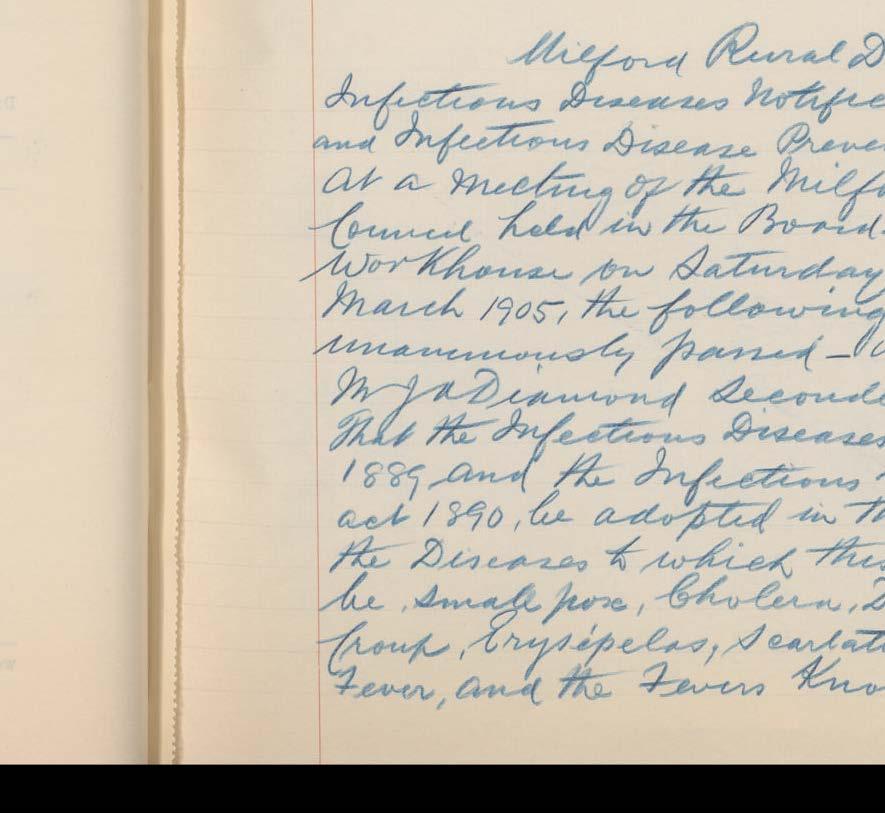 Milford Rural D
Infectious Diseases Notific
and Infectious Disease Preve
At a meeting of the Milfo
Council held in the Board
Workhouse on Saturday
March 1905, the following
unanimously passed —
Mr J A Diamond Seconde
That the Infectious Diseases
1889 and the Infectious
act 1890, be adopted in th
the Diseases to which this
be, small pox, Cholera, D
Croup, Erysipelas, Scarlati
Fever, and the Fevers Kno